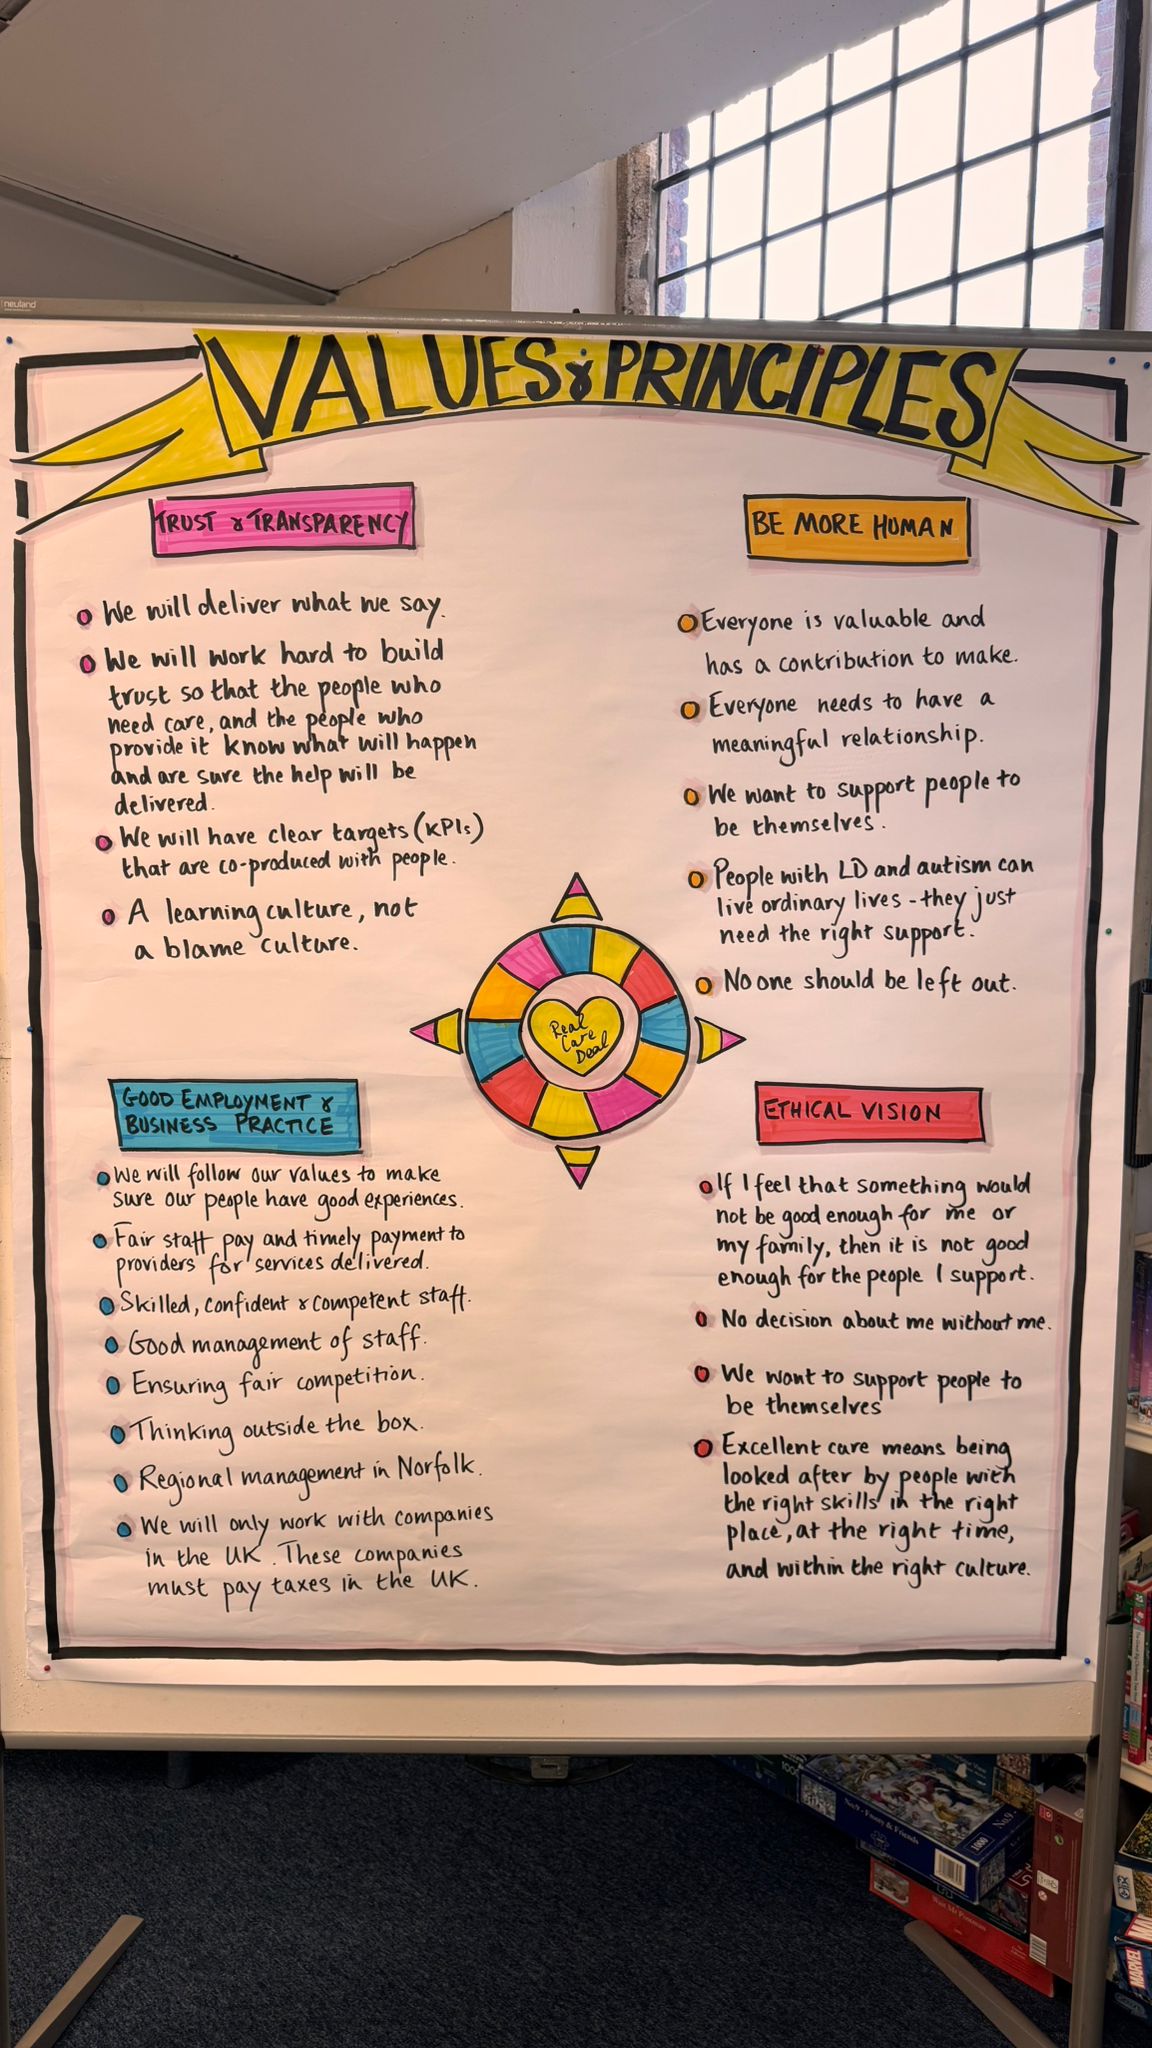 neuland
VALUES & PRINCIPLES
TRUST & TRANSPARENCY
We will deliver what we say.
We will work hard to build
trust so that the people who
need care, and the people who
provide it know what will happen
and are sure the help will be
delivered.
We will have clear targets (KPIs)
that are co-produced with people.
A learning culture, not
a blame culture.
BE MORE HUMAN
Everyone is valuable and
has a contribution to make.
Everyone needs to have a
meaningful relationship.
We want to support people to
be themselves.
People with LD and autism can
live ordinary lives - they just
need the right support.
No one should be left out.
Real
Care
Deal
GOOD EMPLOYMENT &
BUSINESS PRACTICE
We will follow our values to make
sure our people have good experiences.
Fair staff pay and timely payment to
providers for services delivered.
Skilled, confident & competent staff.
Good management of staff.
Ensuring fair competition.
Thinking outside the box.
Regional management in Norfolk.
We will only work with companies
in the UK. These companies
must pay taxes in the UK.
ETHICAL VISION
If I feel that something would
not be good enough for me or
my family, then it is not good
enough for the people I support.
No decision about me without me.
We want to support people to
be themselves
Excellent care means being
looked after by people with
the right skills in the right
place, at the right time,
and within the right culture.
1000
& Friends
1000
MARVEL